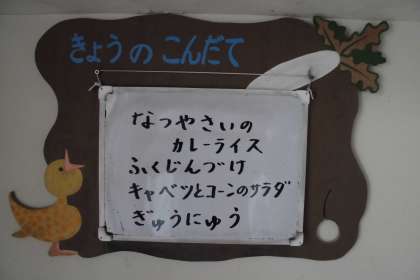 きょうの こんだて
なつやさいの
カレーライス
ふくじんづけ
キャベツとコーンのサラダ
ぎゅうにゅう